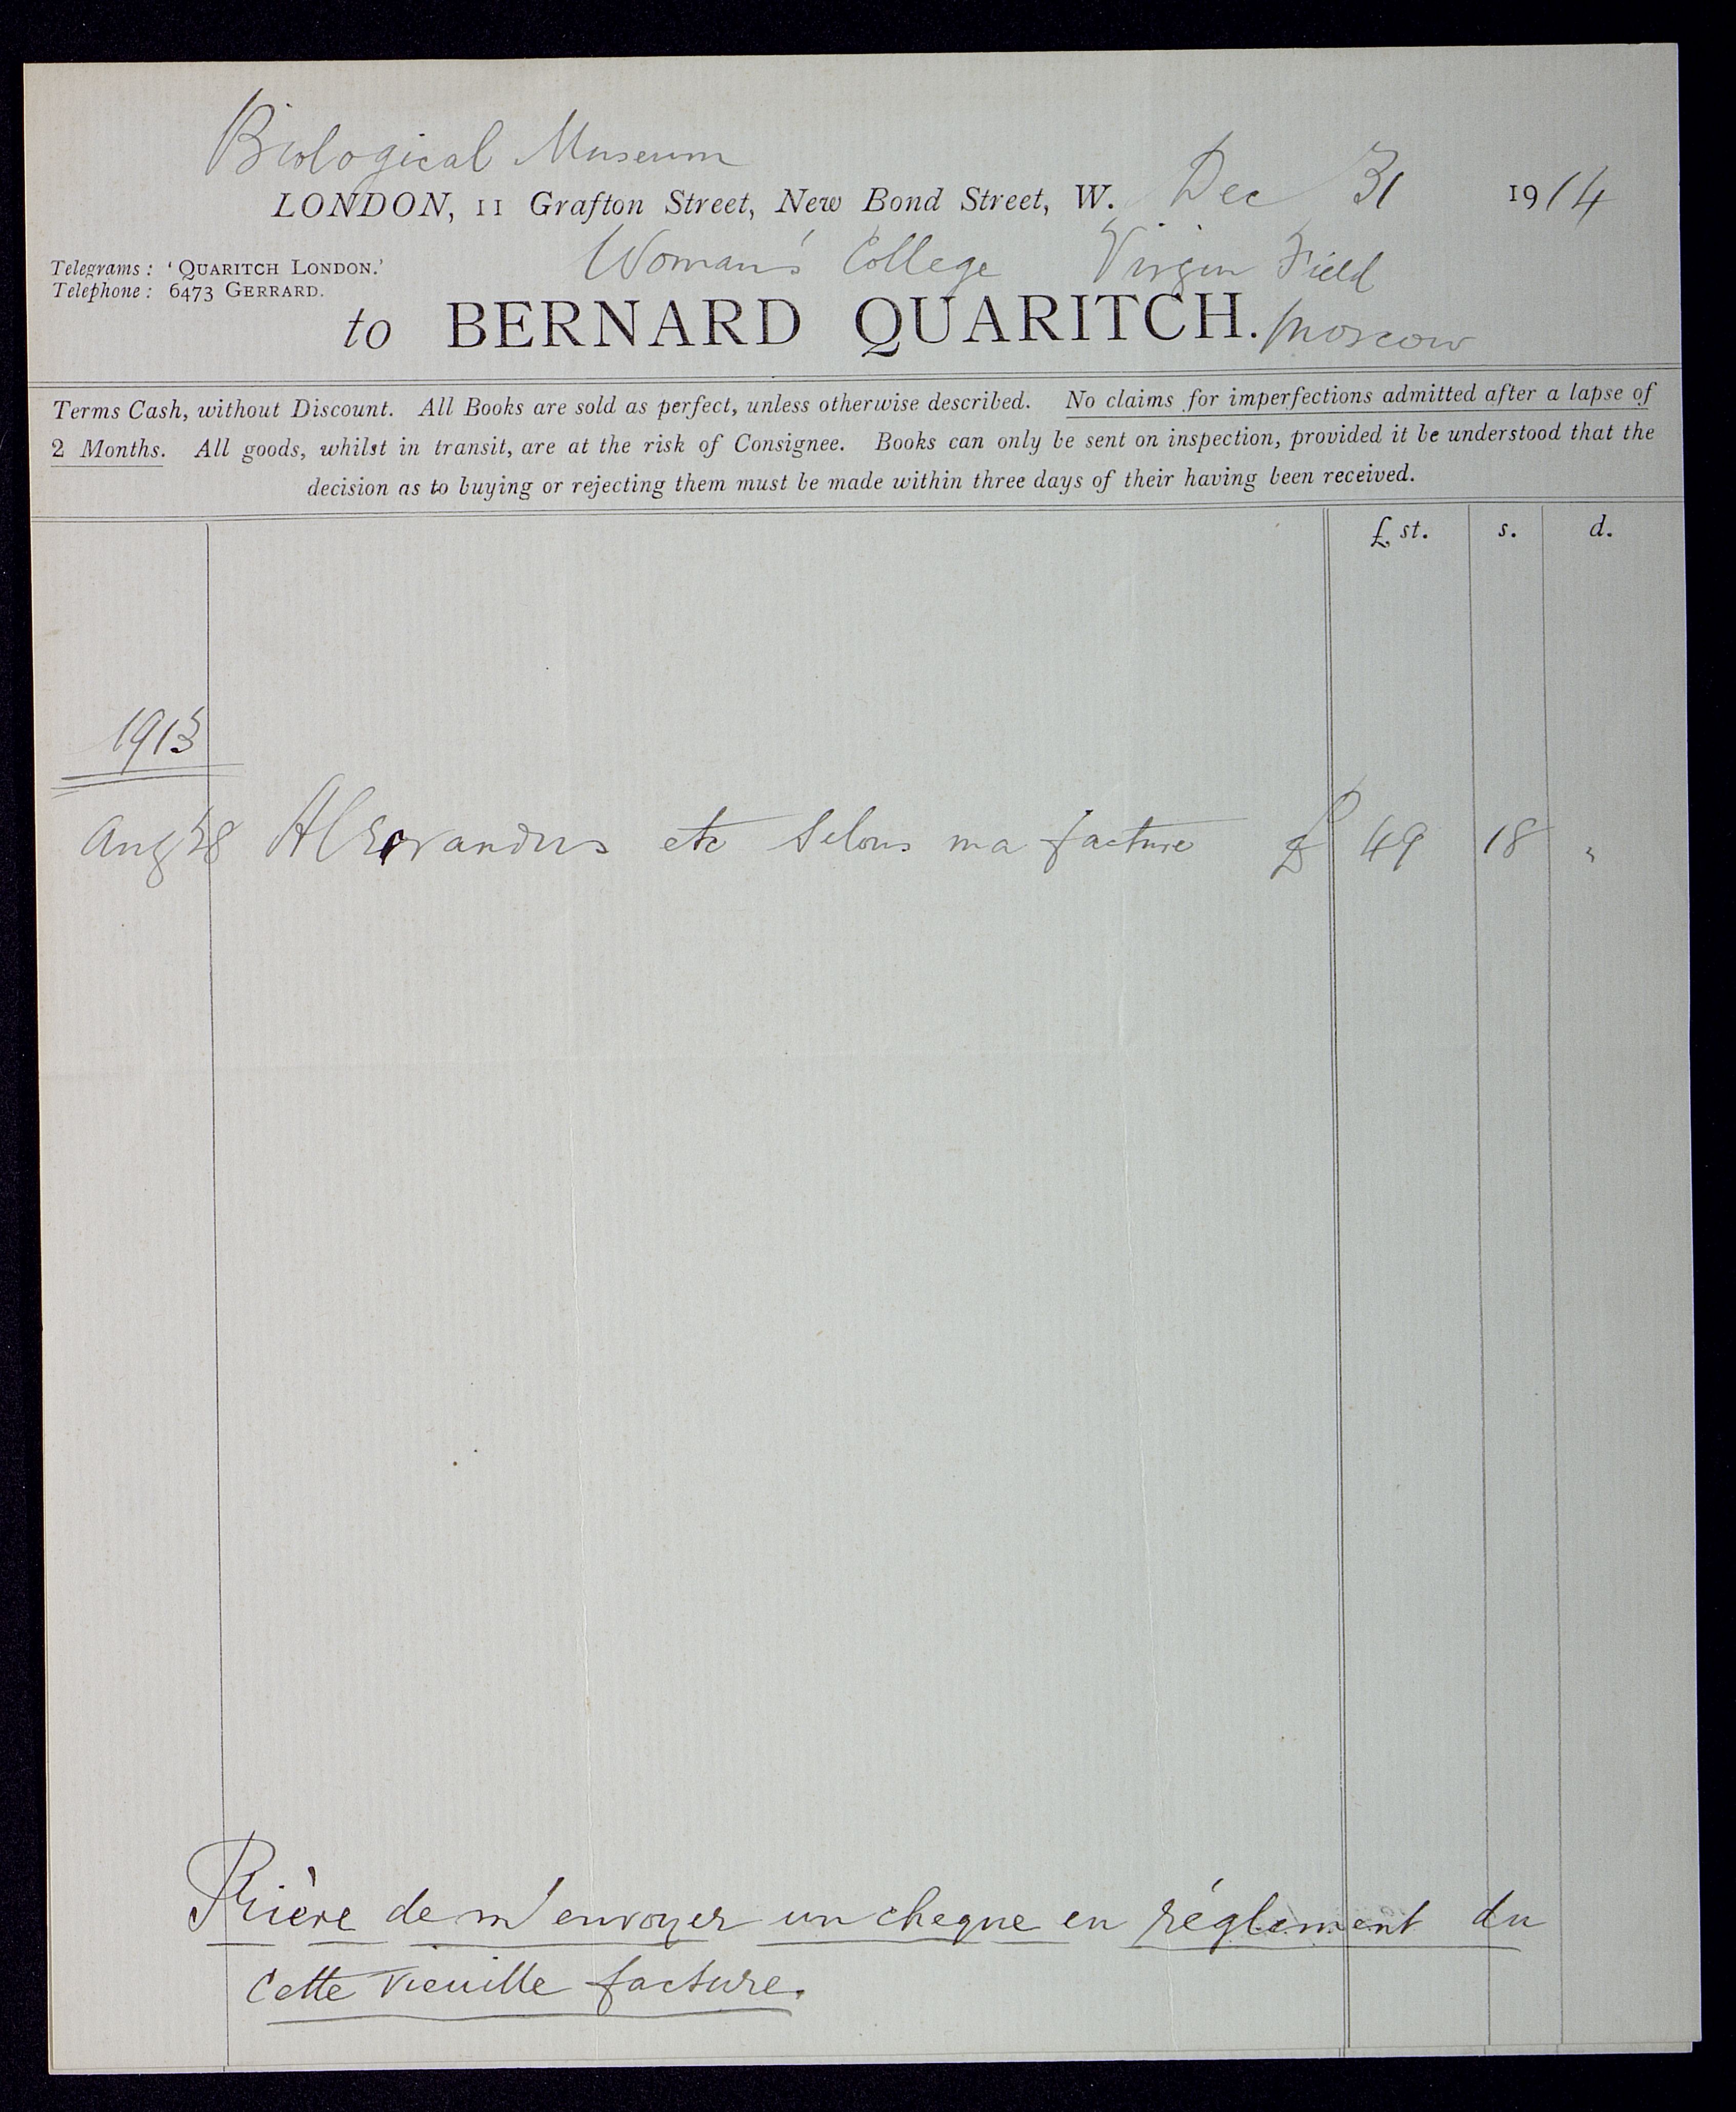 Biological Museum
LONDON, 11 Grafton Street, New Bond Street, W. Dec 31 1914
Woman's College Virgin Field
Telegrams: 'QUARITCH LONDON.'
Telephone: 6473 GERRARD.
to BERNARD QUARITCH. Moscow
Terms Cash, without Discount. All Books are sold as perfect, unless otherwise described. No claims for imperfections admitted after a lapse of
2 Months. All goods, whilst in transit, are at the risk of Consignee. Books can only be sent on inspection, provided it be understood that the
decision as to buying or rejecting them must be made within three days of their having been received.
£ st. s. d.
1913
Aug 28 etc selons ma facture £ 49 18 "
Prière de m'envoyer un cheque en réglement du
cette vieuille facture.